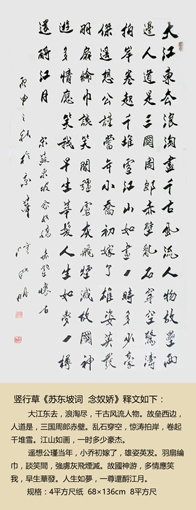 大江東去浪淘盡千古風流人物故壘西
邊人道是三國周郎赤壁亂石穿空驚濤
拍岸卷起千堆雪江山如畫一時多少豪
傑遙想公瑾當年小喬初嫁了雄姿英發
羽扇綸巾談笑間強虜灰飛煙滅故國神
遊多情應笑我早生華髮人生如夢一尊
還酹江月
竖行草《苏东坡词 念奴娇》释文如下：
大江东去，浪淘尽，千古风流人物。故垒西边，
人道是，三国周郎赤壁。乱石穿空，惊涛拍岸，卷起
千堆雪。江山如画，一时多少豪杰。
遥想公瑾当年，小乔初嫁了，雄姿英发。羽扇綸
巾，談笑間，強虜灰飛煙滅。故國神遊，多情應笑
我，早生華髮。人生如夢，一尊還酹江月。
规格：4平方尺纸 68×136cm 8平方尺